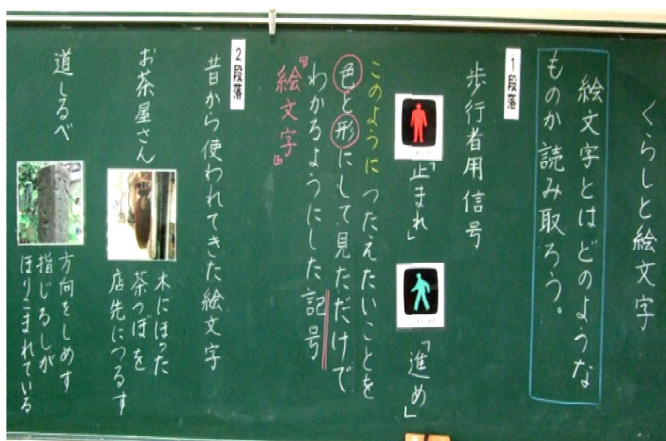 くらしと絵文字
絵文字とはどのような
ものか読み取ろう。
1段落
歩行者用信号
「止まれ」
「進め」
このように つたえたいことを
色と形にして見ただけで
わかるようにした記号
『絵文字』
2段落
昔から使われてきた絵文字
お茶屋さん
木にほった
茶つぼを
店先につるす
道しるべ
方向をしめす
指じるしが
ほりこまれている